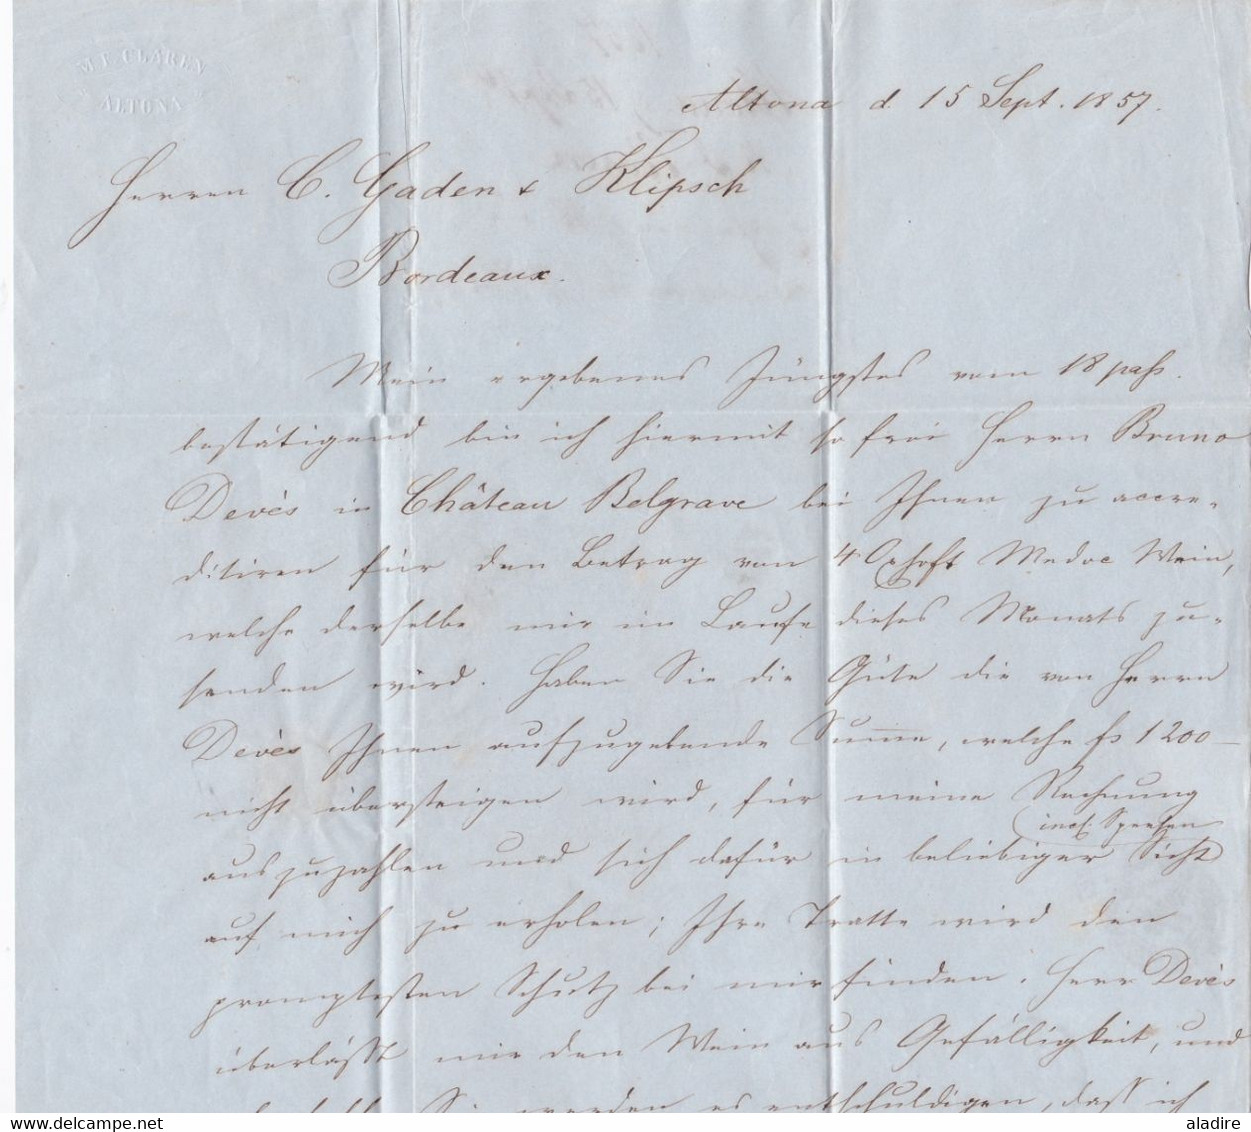 M. T. CLAREN
ALTONA
Altona d. 15 Sept. 1857.
Herren C. Gaden & Klipsch
Bordeaux.
Mein ergebenes Jüngstes vom 18 pass.
bestätigend bin ich hiermit so frei Herrn Bruno
Devès in Château Belgrave bei Ihnen zu accre-
ditiren für den Betrag von 4 Oxhoft Medoc Wein,
welche derselbe mir im Laufe dieses Monats zu-
senden wird. Haben Sie die Güte die von Herrn
Devès Ihnen aufzugebende Summe, welche fs 1200—
nicht übersteigen wird, für meine Rechnung
(incl. Spesen
auszuzahlen und sich dafür in beliebiger Sicht
auf mich zu erholen; Ihre Tratte wird den
promptesten Schutz bei mir finden. Herr Devès
überlässt mir den Wein aus Gefälligkeit, und
Sie werden es entschuldigen, dass ich
aladire